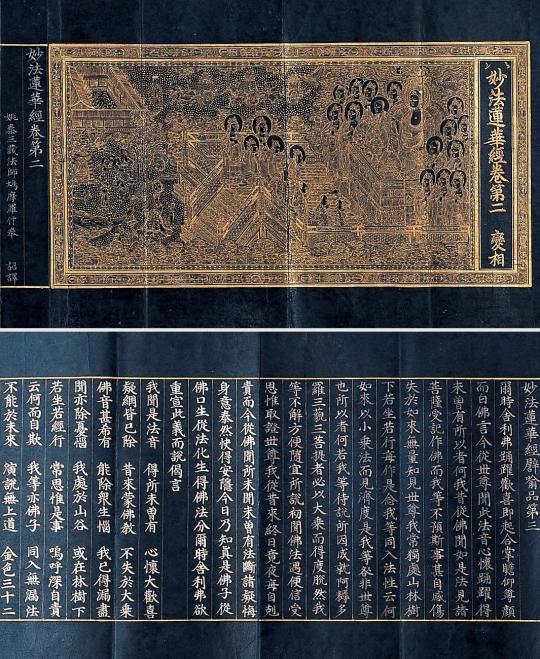 妙法蓮華經卷第二 變相
妙法蓮華經卷第二
姚秦三藏法師鳩摩羅什奉 詔譯
妙法蓮華經譬喻品第三
爾時舍利弗踊躍歡喜即起合掌瞻仰尊顏
而白佛言今從世尊聞此法音心懷踊躍得
未曾有所以者何我昔從佛聞如是法見諸
菩薩受記作佛而我等不預斯事甚自感傷
失於如來無量知見世尊我常獨處山林樹
下若坐若行每作是念我等同入法性云何
如來以小乘法而見濟度是我等咎非世尊
也所以者何若我等待說所因成就阿耨多
羅三藐三菩提者必以大乘而得度脫然我
等不解方便隨宜所說初聞佛法遇便信受
思惟取證世尊我從昔來終日竟夜每自剋
責而今從佛聞所未聞未曾有法斷諸疑悔
身意泰然快得安隱今日乃知真是佛子從
佛口生從法化生得佛法分爾時舍利弗欲
重宣此義而說偈言
我聞是法音 得所未曾有 心懷大歡喜
疑網皆已除 昔來蒙佛教 不失於大乘
佛音甚希有 能除眾生惱 我已得漏盡
聞亦除憂惱 我處於山谷 或在林樹下
若坐若經行 常思惟是事 嗚呼深自責
云何而自欺 我等亦佛子 同入無漏法
不能於未來 演說無上道 金色三十二